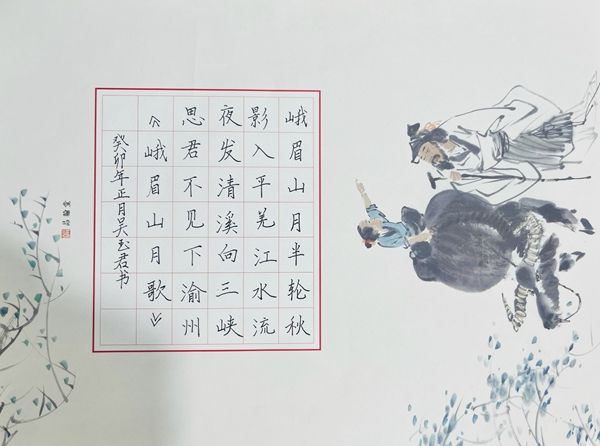 峨眉山月半轮秋
影入平羌江水流
夜发清溪向三峡
思君不见下渝州
《峨眉山月歌》
癸卯年正月吴玉君书